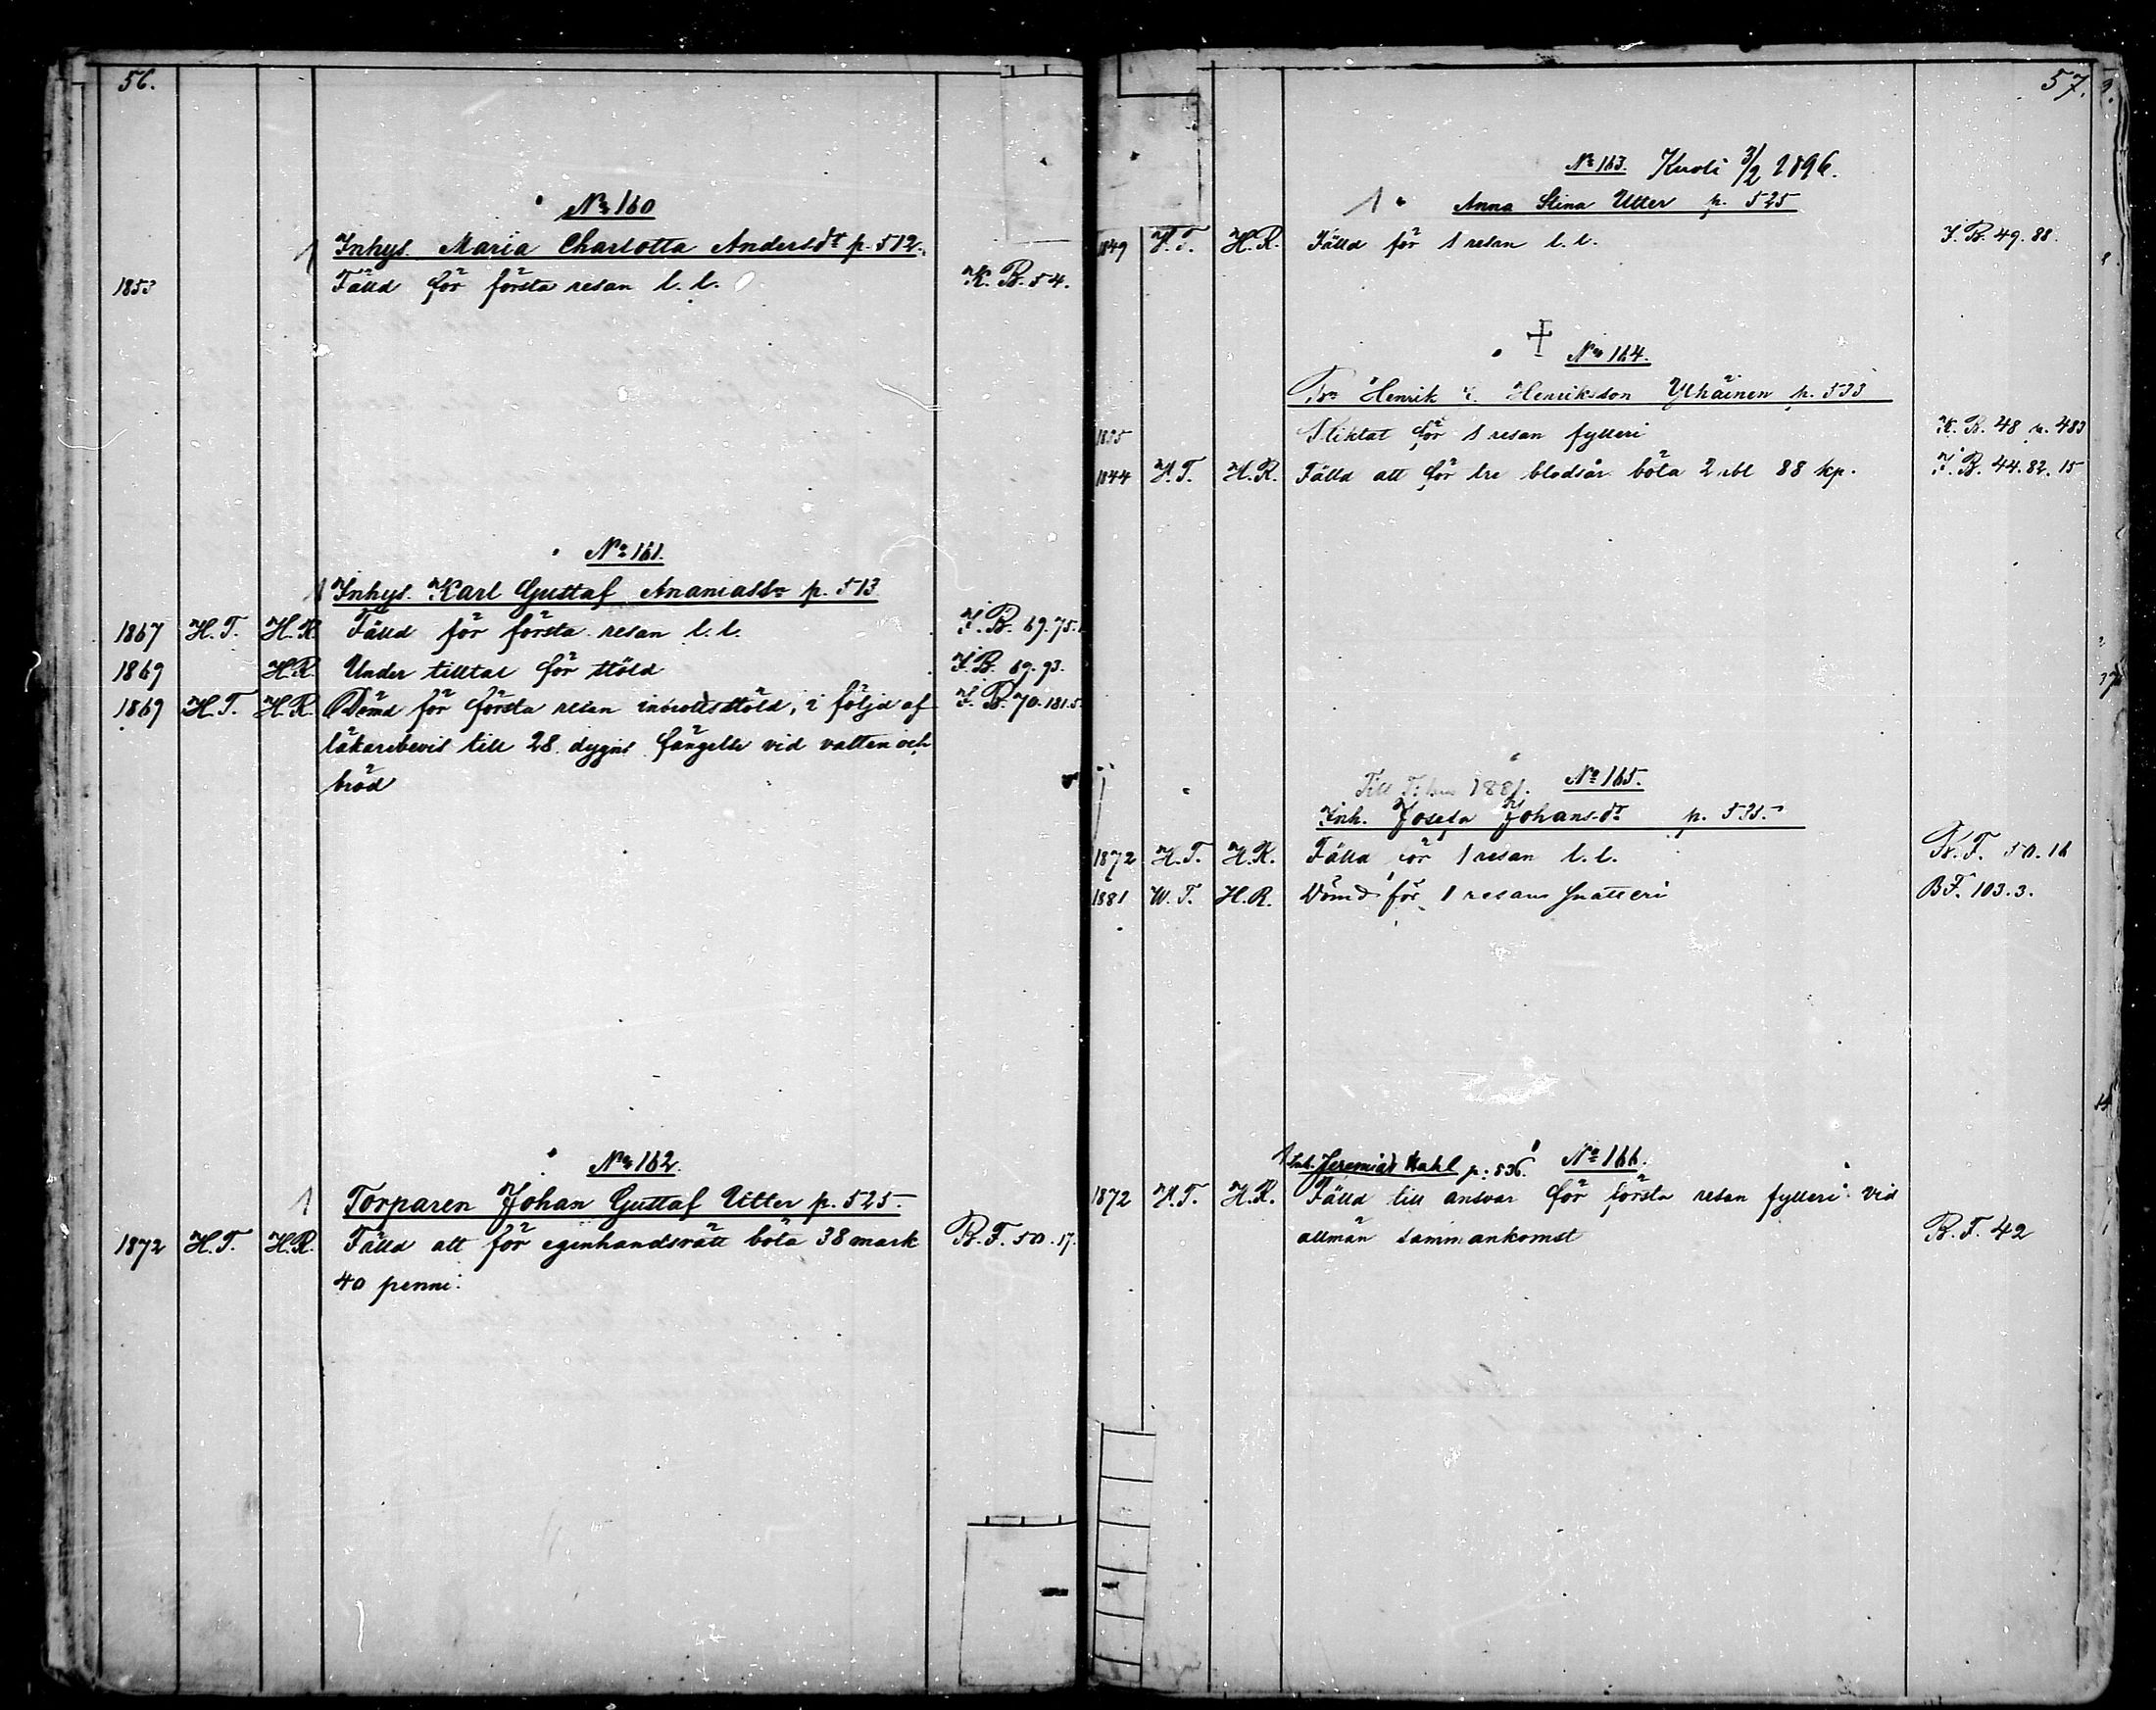 56.
No 160
Inhys. Maria Charlotta Andersdr p. 512.
1853 Fälld för första resan l. l. K. B. 54.
No 161.
Inhys. Karl Gustaf Ananiassn p. 513
1867 H. T. H. R. Fälld för första resan l. l. I. B. 69. 75.
1869 H. R. Under tilltal för stöld I. B. 69. 93.
1869 H. T. H. R. Dömd för första resan inbrottsstöld, i följd af I. B. 70. 181. 5
läkarebevis till 28 dygns fängelse vid vatten och
bröd
No 162.
Torparen Johan Gustaf Utter p. 525.
1872 H. T. H. R. Fälld att för egenhandsrätt böta 38 mark B. F. 50. 17.
40 penni.
57.
No 163. Kuoli 3/2 1896.
Anna Stina Utter p. 525
1849 V. T. H. R. Fälld för 1 resan l. l. I. B. 49. 88.
No 164.
Henrik Henriksson Yhäinen p. 533
1835 Pliktat för 1 resan fylleri K. B. 48 p. 483
1844 V. T. H. R. Fälld att för tre blodsår böta 2 rbl 88 kp. I. B. 44. 82. 15
Till 1881. No 165.
Inh. Josefa Johansdr p. 535
1872 H. T. H. R. Fälld för 1 resan l. l. B. F. 50. 16
1881 W. T. H. R. Dömd för 1 resans snatteri BF. 103. 3.
Inh. Jeremias Wahl p: 536. No 166.
1872 V. T. H. R. Fälld till ansvar för första resan fylleri vid
allmän sammankomst B. F. 42